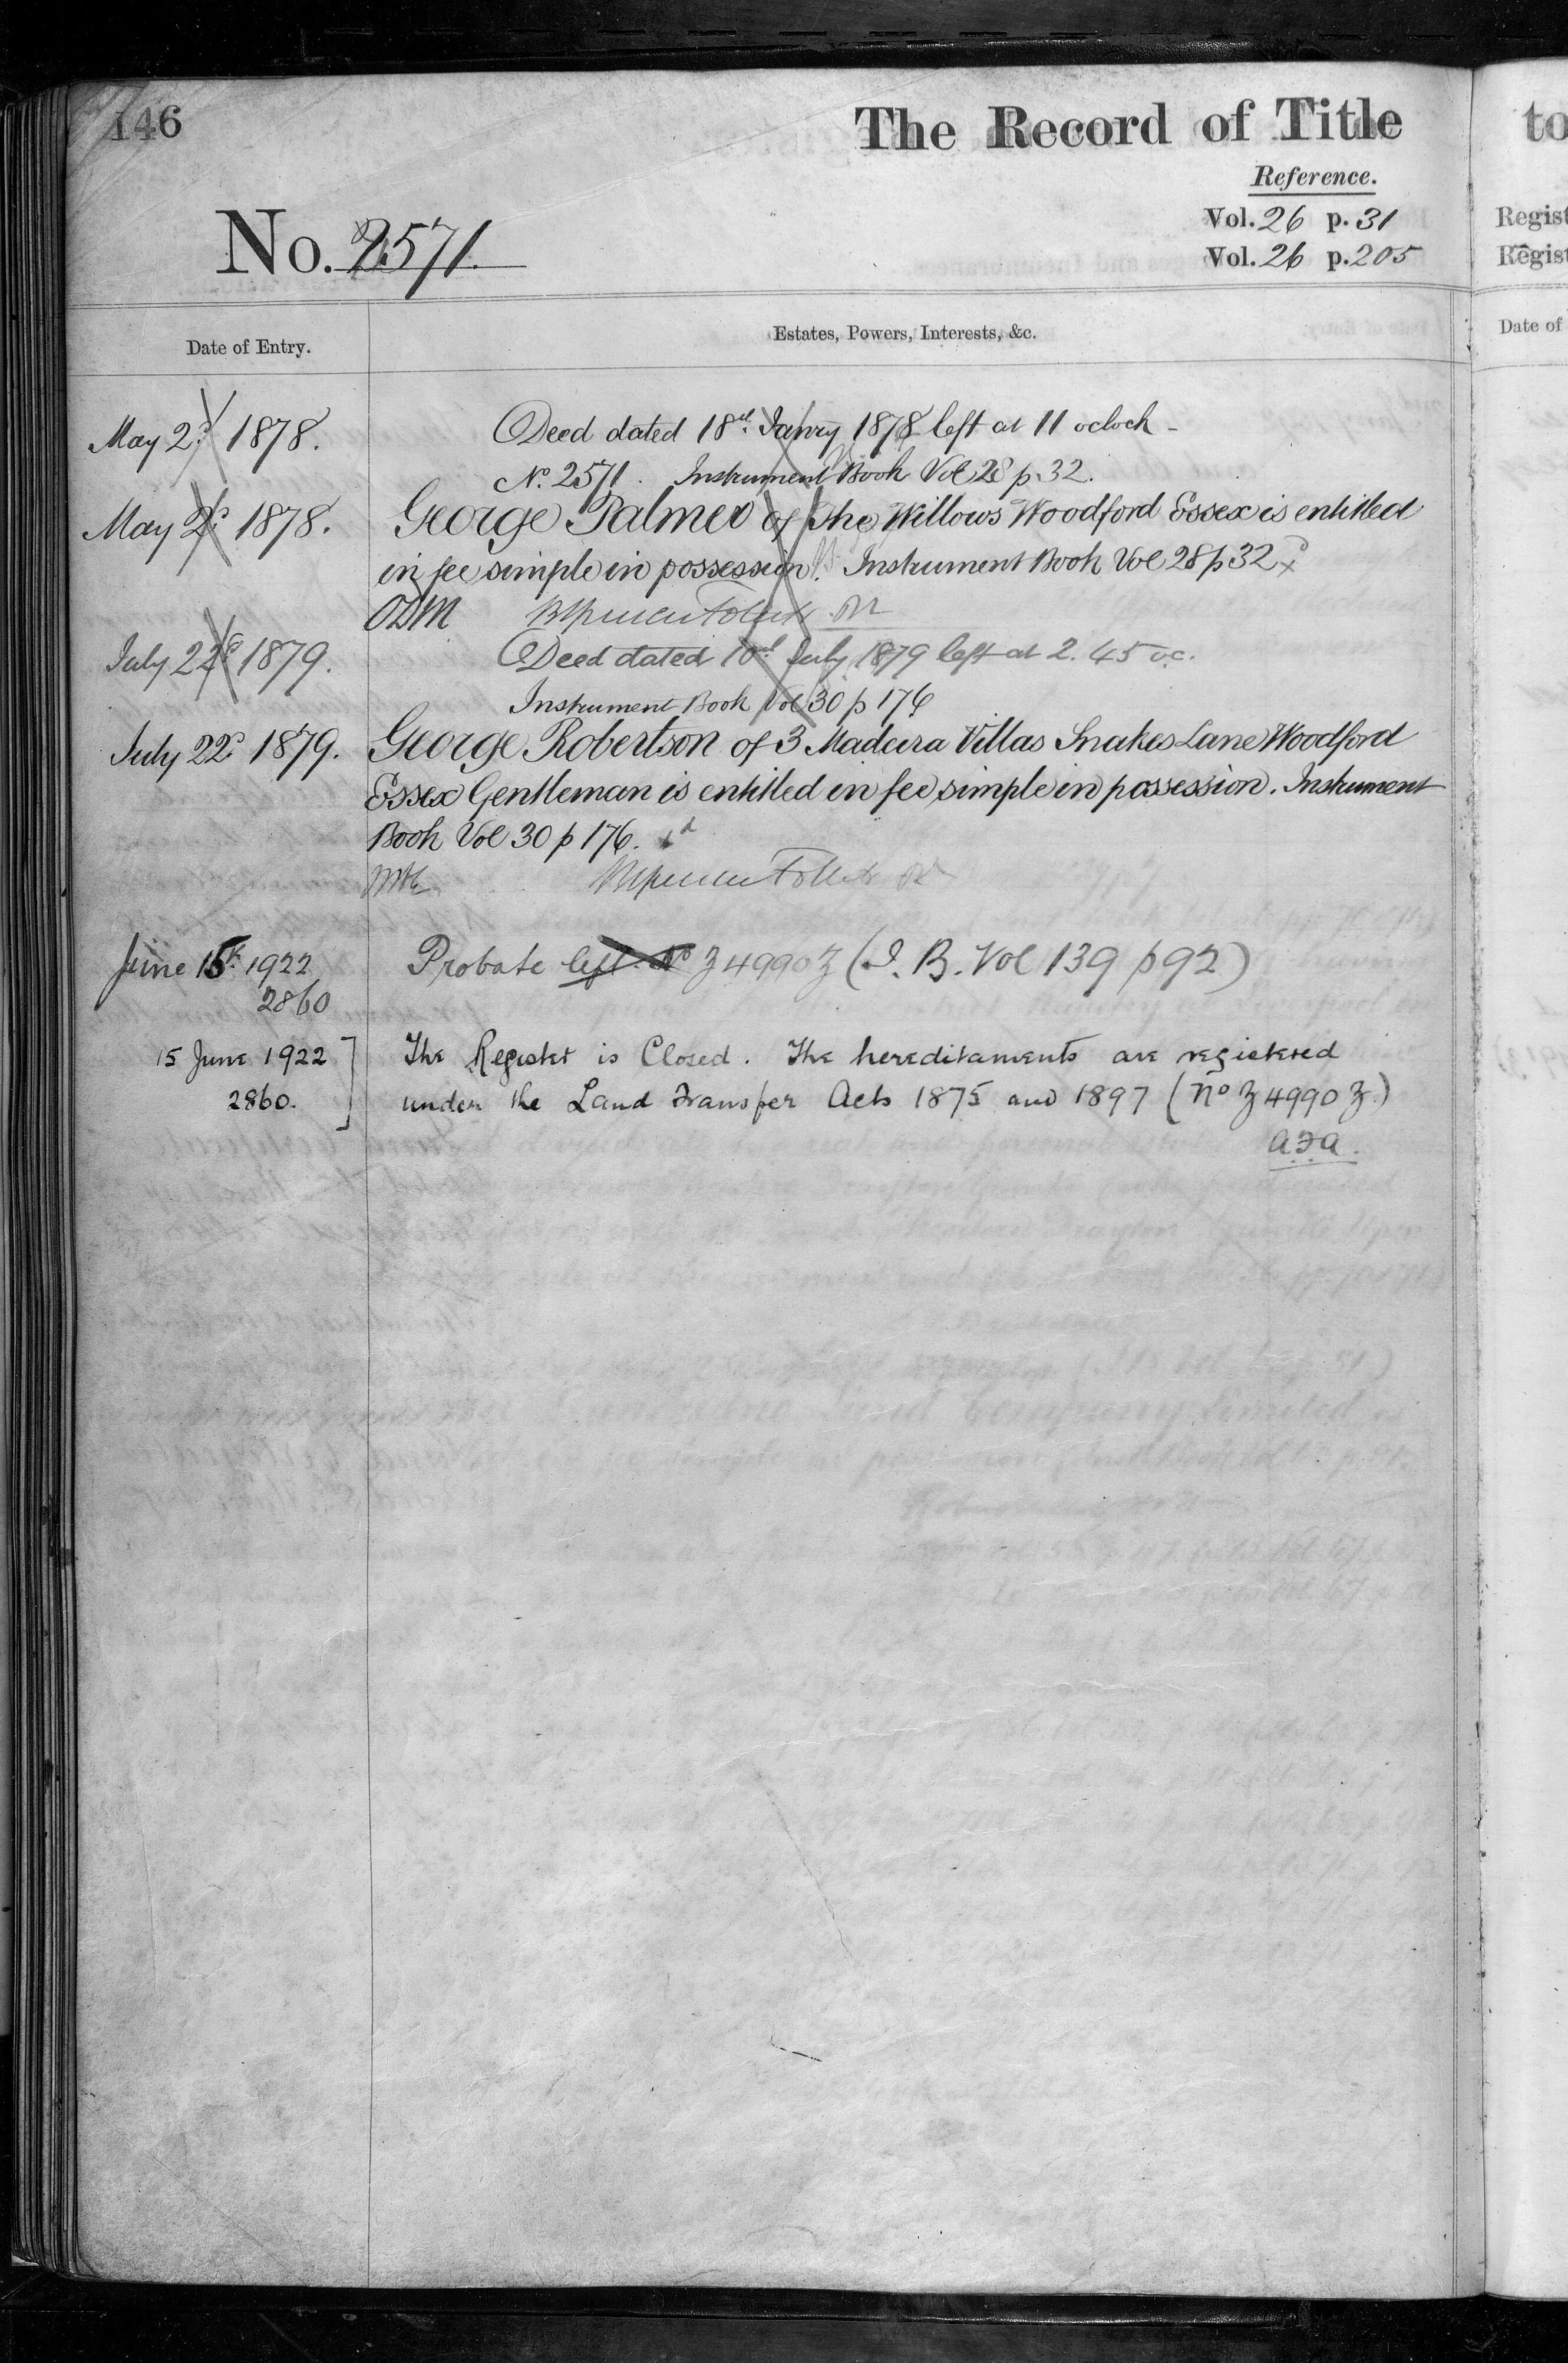 146
The Record of Title
Reference.
No. 2571.
Vol. 26 p. 31
Vol. 26 p. 205
Date of Entry.
Estates, Powers, Interests, &c.
May 2d 1878.
Deed dated 18th Janry 1878 left at 11 oclock -
No. 2571. Instrument Book Vol 28 p. 32.
May 2d 1878.
George Palmer of The Willows Woodford Essex is entitled
in fee simple in possession. Instrument Book Vol 28 p 32 x
ODM
July 22d 1879.
Deed dated 10th July 1879 left at 2.45 oc.
Instrument Book Vol 30 p 176
July 22d 1879.
George Robertson of 3 Madeira Villas Snakes Lane Woodford
Essex Gentleman is entitled in fee simple in possession. Instrument
Book Vol 30 p 176.
June 15th 1922
2860
Probate left No Z4990Z (I. B. Vol 139 p 92)
15 June 1922
2860.
The Register is Closed. The hereditaments are registered
under the Land Transfer Acts 1875 and 1897 (No Z4990Z.)
to
Regist
Regist
Date of